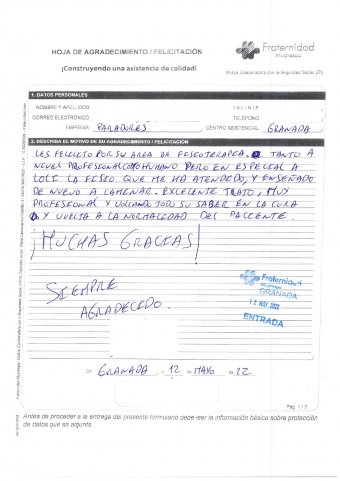 HOJA DE AGRADECIMIENTO / FELICITACIÓN
¡Construyendo una asistencia de calidad!
Fraternidad
Muprespa
Mutua Colaboradora con la Seguridad Social 275
1. DATOS PERSONALES
NOMBRE Y APELLIDOS
D.N.I. / N.I.E.
CORREO ELECTRÓNICO
TELÉFONO
EMPRESA PARADORES
CENTRO ASISTENCIAL GRANADA
2. DESCRIBA EL MOTIVO DE SU AGRADECIMIENTO / FELICITACIÓN
LES FELICITO POR SU AREA DE FISIOTERAPIA. TANTO A
NIVEL PROFESIONAL COMO HUMANO PERO EN ESPECIAL A
LOLI LA FISIO QUE ME HA ATENDIDO, Y ENSEÑADO
DE NUEVO A CAMINAR. EXCELENTE TRATO, MUY
PROFESIONAL Y VOLCANDO TODO SU SABER EN LA CURA
Y VUELTA A LA NORMALIDAD DEL PACIENTE.
¡MUCHAS GRACIAS!
SIEMPRE
AGRADECIDO.
Fraternidad
MUPRESPA
GRANADA
12 MAY. 2022
ENTRADA
GRANADA 12 MAYO 22
Pág. 1 / 2
Antes de proceder a la entrega del presente formulario debe leer la información básica sobre protección
de datos que se adjunta.